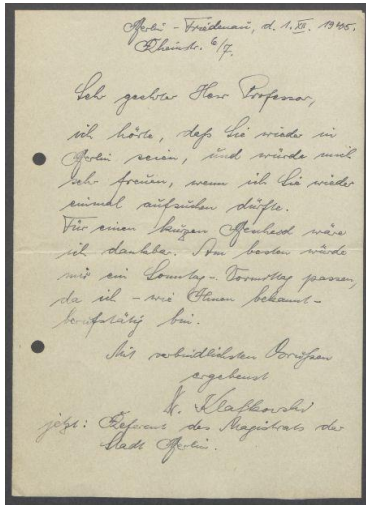 Berlin-Friedenau, d. 1. XII. 1945.
Rheinstr. 6/7.
Sehr geehrter Herr Professor,
ich hörte, daß Sie wieder in
Berlin seien, und würde mich
sehr freuen, wenn ich Sie wieder
einmal aufsuchen dürfte.
Für einen kurzen Bescheid wäre
ich dankbar. Am besten würde
mir ein Sonntag-Vormittag passen,
da ich - wie Ihnen bekannt -
berufstätig bin.
Mit verbindlichsten Grüßen
ergebenst
Klafkowski
jetzt: Referent des Magistrats der
Stadt Berlin.